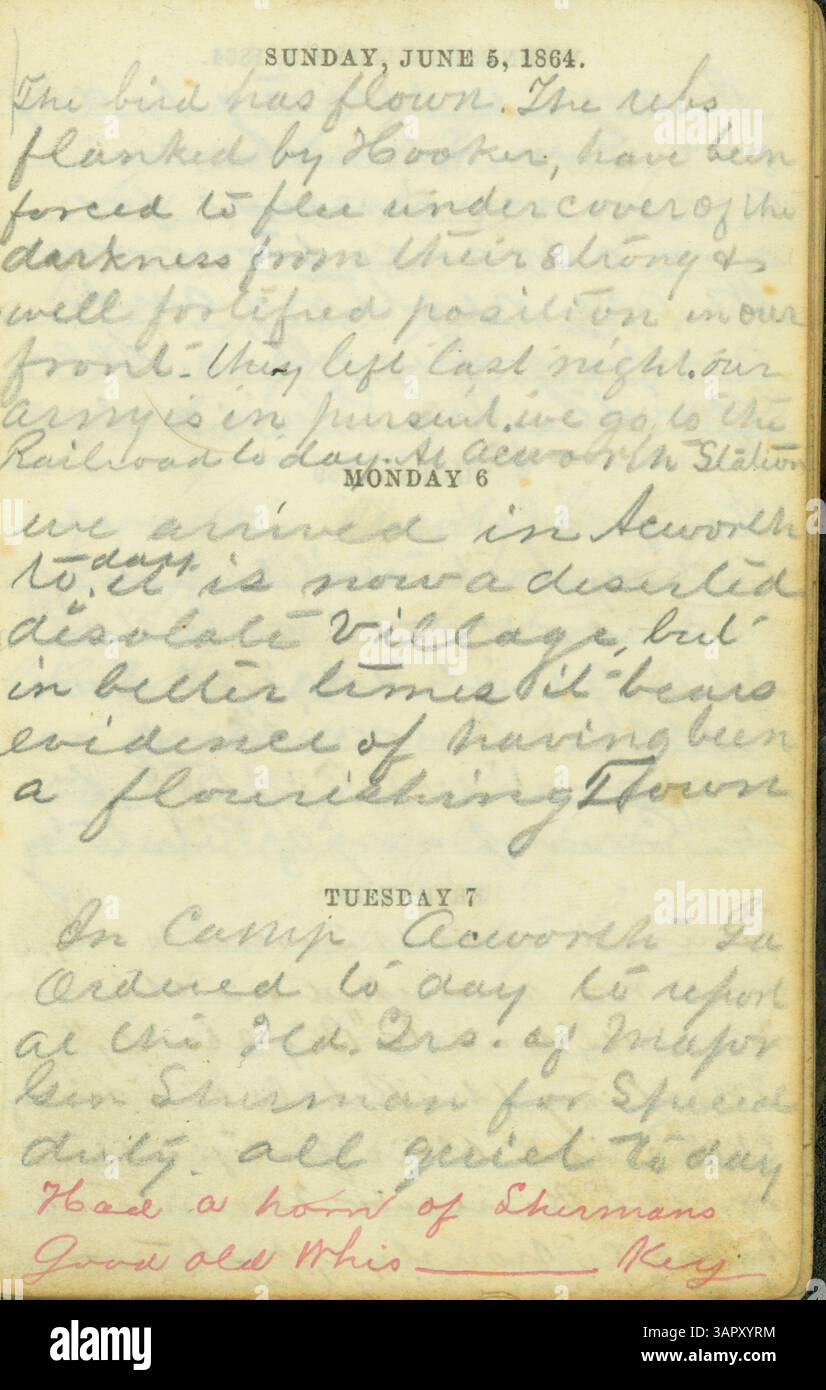 SUNDAY, JUNE 5, 1864.
The bird has flown. The rebs
flanked by Hooker, have been
forced to flee under cover of the
darkness from their strong &
well fortified position in our
front. they left last night. our
army is in pursuit. we go to the
Railroad to day. At Acworth Station
MONDAY 6
we arrived in Acworth
to day. it is now a deserted
desolate Village, but
in better times it bears
evidence of having been
a flourishing Town
TUESDAY 7
In Camp Acworth Ga
Ordered to day to report
at the Hd. Qrs. of Major
Gen Sherman for Special
duty. all quiet to day
Had a horn of Shermans
Good old Whis______ Key
alamy
Image ID: 3APXYRM
www.alamy.com